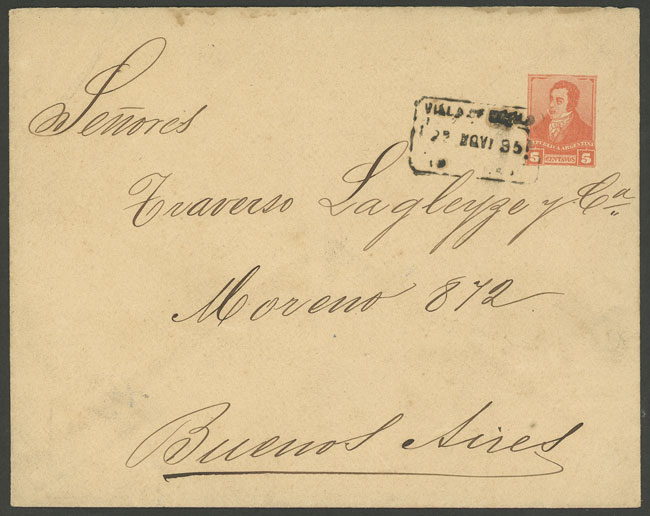 Señores
Traverso Lagleyze y Cª
Moreno 872
Buenos Aires
REPUBLICA ARGENTINA
5 CENTAVOS 5
NOV 95